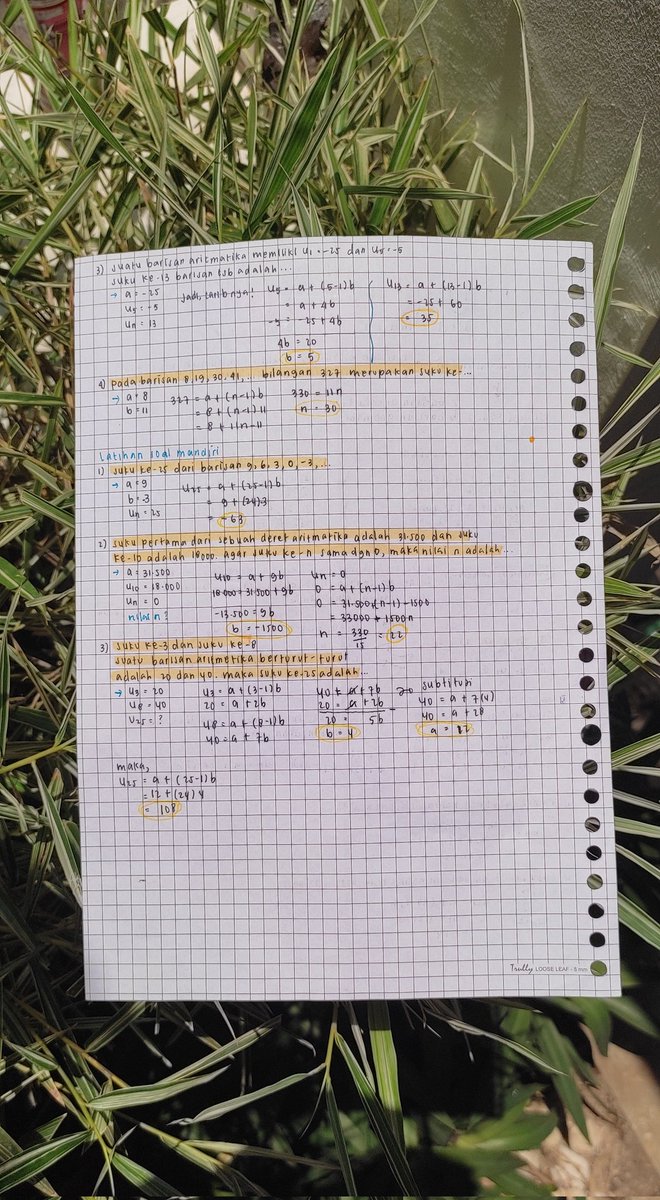 3) suatu barisan aritmatika memiliki U1 = -25 dan U5 = -5
suku ke-13 barisan tsb adalah...
→ a = -25
U5 = -5
Un = 13
Jadi, cari b nya!
U5 = a + (5-1)b
= a + 4b
-5 = -25 + 4b
4b = 20
b = 5
U13 = a + (13-1)b
= -25 + 60
= 35
4) pada barisan 8, 19, 30, 41, ... bilangan 327 merupakan suku ke-...
→ a = 8
b = 11
327 = a + (n-1)b
= 8 + (n-1)11
= 8 + 11n-11
330 = 11n
n = 30
Latihan soal mandiri
1) suku ke-25 dari barisan 9, 6, 3, 0, -3, ...
→ a = 9
b = -3
Un = 25
U25 = a + (25-1)b
= 9 + (24)-3
= -63
2) suku pertama dari sebuah deret aritmatika adalah 31.500 dan suku
ke-10 adalah 18000. agar suku ke-n sama dgn 0, maka nilai n adalah...
→ a = 31.500
U10 = 18.000
Un = 0
nilai n?
U10 = a + 9b
18.000 = 31.500 + 9b
-13.500 = 9b
b = -1500
Un = 0
0 = a + (n-1)b
0 = 31.500 + (n-1) -1500
= 33000 + 1500n
n = 330/15 = 22
3) suku ke-3 dan suku ke-8
suatu barisan aritmetika berturut-turut
adalah 20 dan 40. maka suku ke-25 adalah...
→ U3 = 20
U8 = 40
U25 = ?
U3 = a + (3-1)b
20 = a + 2b
U8 = a + (8-1)b
40 = a + 7b
40 = a + 7b
20 = a + 2b -
20 = 5b
b = 4
substitusi
40 = a + 7(4)
40 = a + 28
a = 12
maka,
U25 = a + (25-1)b
= 12 + (24)4
= 108
Trully LOOSE LEAF - 5 mm